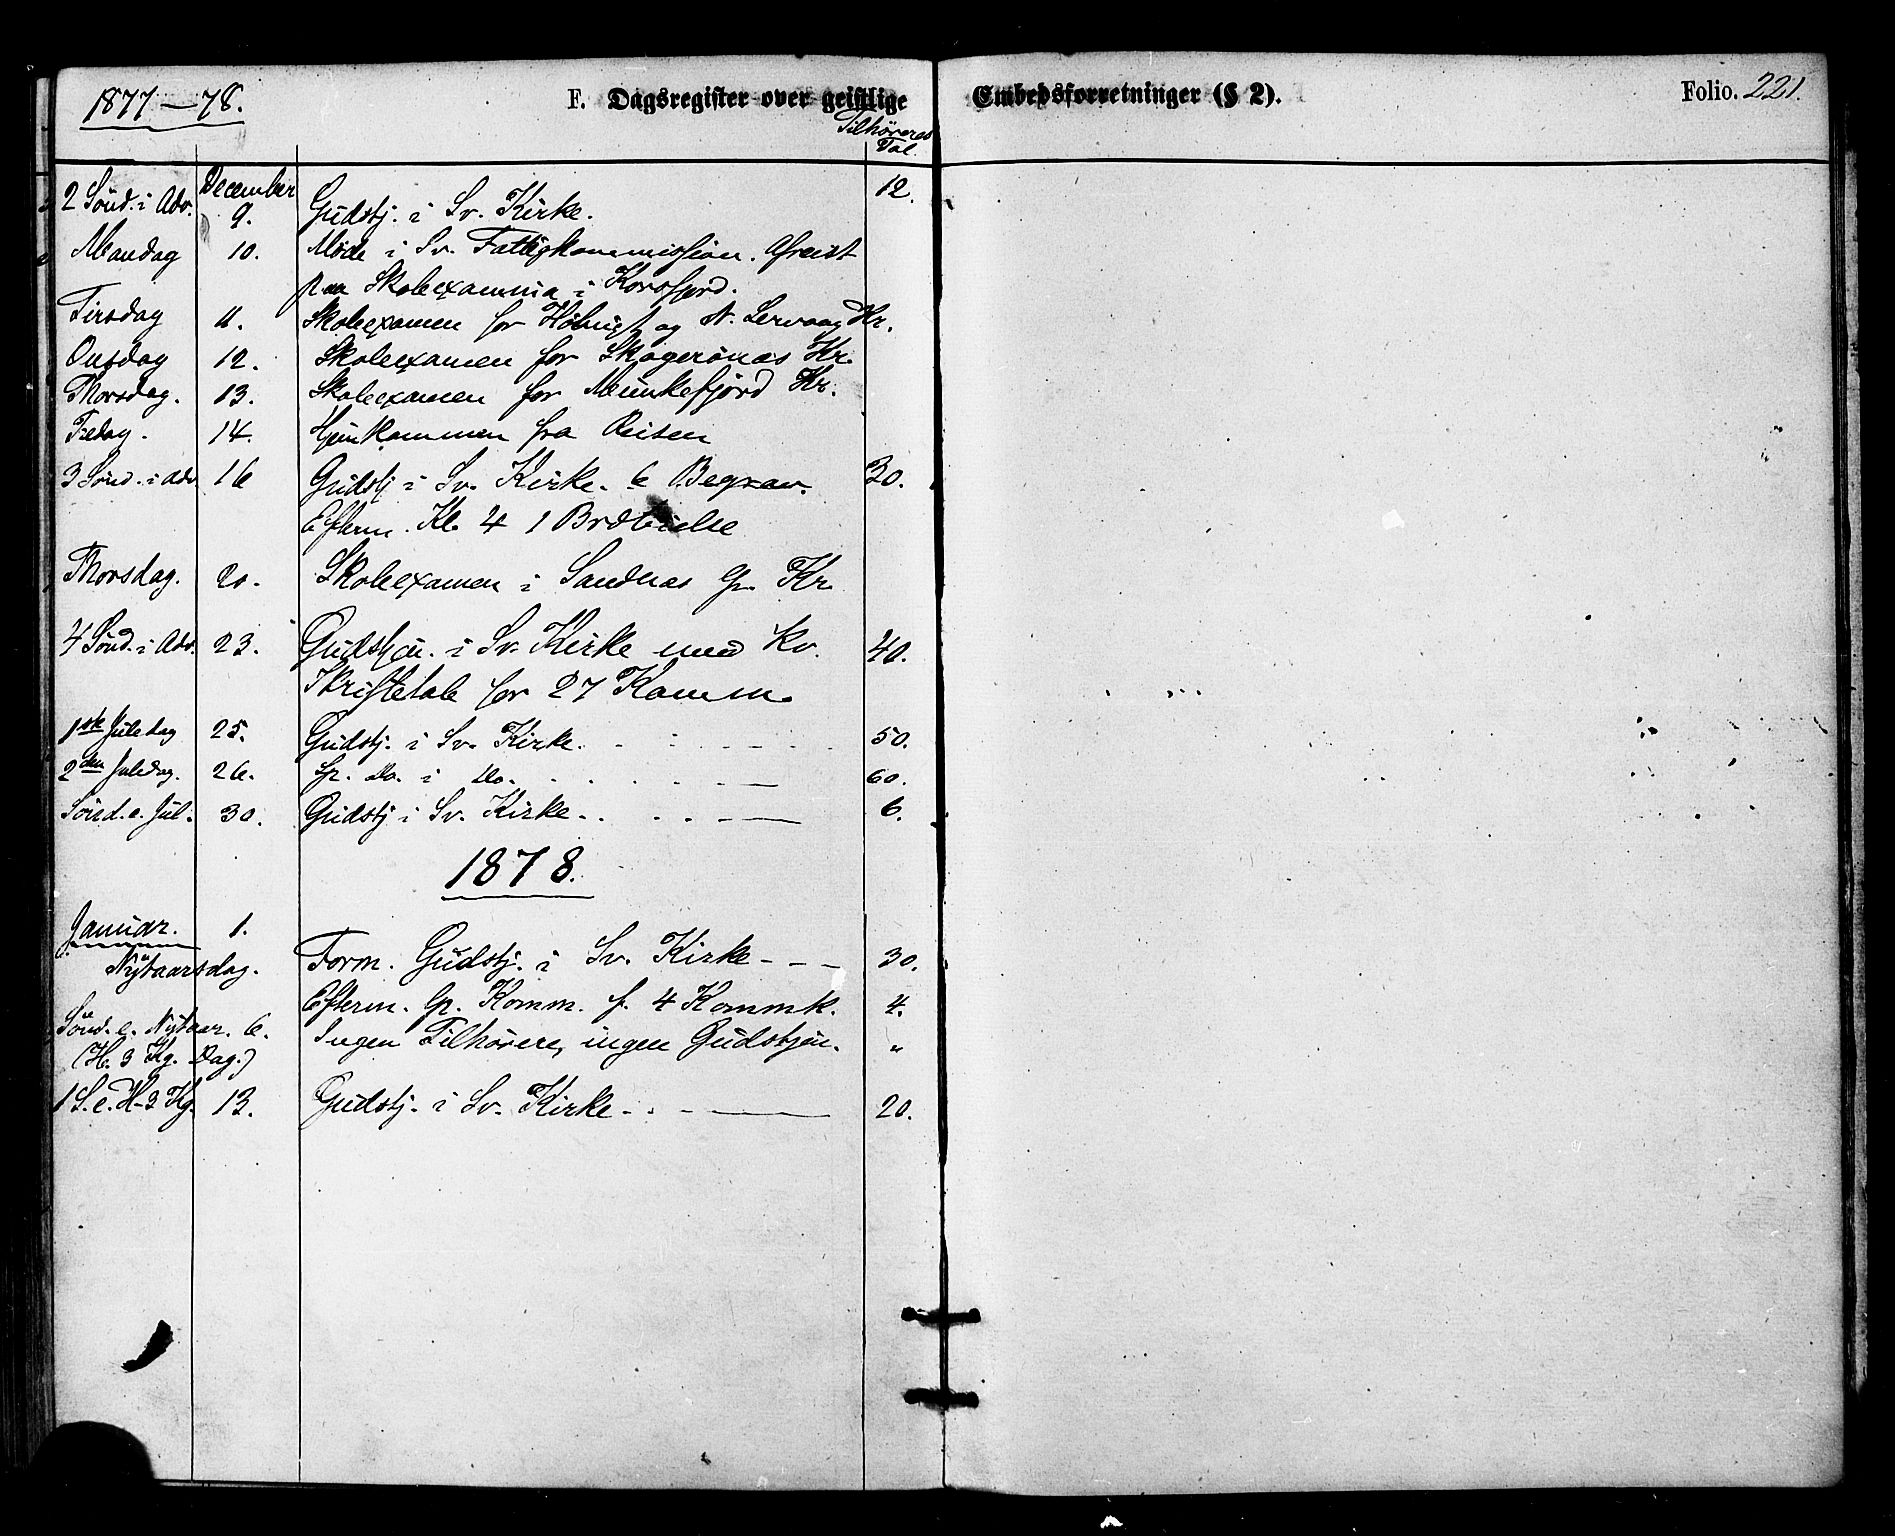 1877–78. F. Dagsregister over geistlige Embedsforretninger (§ 2). Folio. 221.
Tilhöreres
Tal.
December
2 Sönd. i Adv. 9. Gudstj. i Sv. Kirke. 12.
Mandag 10. Möde i Sv. Fattigkommission. Afreist
paa Skoleexamina i Korsfjord.
Tirsdag 11. Skoleexamen for og N. Lervaag Kr.
Onsdag 12. Skoleexamen for Skogerönæs Kr.
Thorsdag. 13. Skoleexamen for Munkefjord Kr.
Fredag. 14. Hjemkommen fra Reisen
3 Sönd. i Adv 16 Gudstj i Sv. Kirke. 6 Begrav. 30.
Efterm. Kl. 4 1 Brdvielse
Thorsdag. 20. Skoleexamen i Sandnæs Kr
4 Sönd. i Adv. 23. Gudstjen. i Sv. Kirke med Kv. 40.
Skriftetale for 27 Komm.
1ste Juledag 25. Gudstj. i Sv. Kirke. 50.
2den Juledag. 26. Sp. Do. i Do. 60.
Sönd. e. Jul. 30. Gudstj i Sv. Kirke. 6.
1878.
Januar. 1.
Nytaarsdag. Form. Gudstj. i Sv. Kirke 30.
Efterm. Sp. Komm. f. 4 Kommk. 4.
Sönd. e. Nytaar. 6. Ingen Tilhörere, ingen Gudstjen. „
(H. 3 Kg. Dag.)
1 S. e. H. 3 Kg. 13. Gudstj. i Sv. Kirke 20.